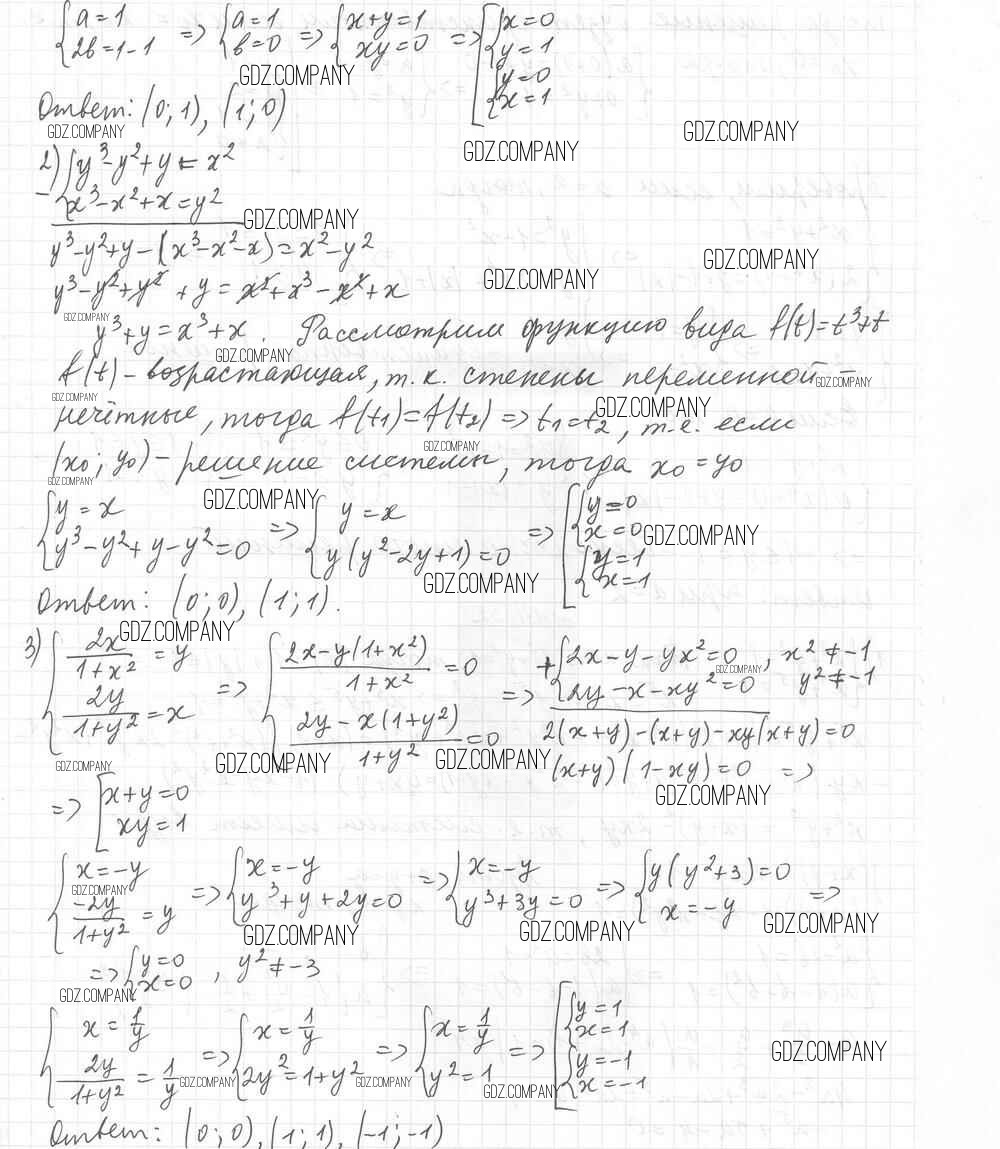 {a=1 2b=1-1 => {a=1 b=0 => {x+y=1 xy=0 => [{x=0 y=1 {y=0 x=1
GDZ.COMPANY
Ответ: (0;1), (1;0)
GDZ.COMPANY GDZ.COMPANY GDZ.COMPANY
2) {y³-y²+y=x²
- x³-x²+x=y²
GDZ.COMPANY
y³-y²+y-(x³-x²-x)=x²-y²
GDZ.COMPANY GDZ.COMPANY
y³-y²+y²+y=x²+x³-x²+x
GDZ.COMPANY
y³+y=x³+x. Рассмотрим функцию вида f(t)=t³+t
GDZ.COMPANY
f(t) - возрастающая, т.к. степены переменной -
GDZ.COMPANY GDZ.COMPANY GDZ.COMPANY
нечётные, тогда f(t₁)=f(t₂) => t₁=t₂, т.е. если
GDZ.COMPANY
(x₀; y₀) - решение системы, тогда x₀=y₀
GDZ.COMPANY GDZ.COMPANY
{y=x y³-y²+y-y²=0 => {y=x y(y²-2y+1)=0 => [{y=0 x=0 {y=1 x=1
GDZ.COMPANY GDZ.COMPANY
Ответ: (0;0), (1;1).
GDZ.COMPANY
3) {2x/(1+x²)=y 2y/(1+y²)=x => {(2x-y(1+x²))/(1+x²)=0 (2y-x(1+y²))/(1+y²)=0 => + {2x-y-yx²=0, x²≠-1 2y-x-xy²=0 y²≠-1
GDZ.COMPANY
2(x+y)-(x+y)-xy(x+y)=0
GDZ.COMPANY GDZ.COMPANY GDZ.COMPANY
(x+y)(1-xy)=0 =>
GDZ.COMPANY
=> [x+y=0 xy=1
{x=-y -2y/(1+y²)=y => {x=-y y³+y+2y=0 => {x=-y y³+3y=0 => {y(y²+3)=0 x=-y =>
GDZ.COMPANY GDZ.COMPANY GDZ.COMPANY GDZ.COMPANY
=> {y=0 x=0, y²≠-3
GDZ.COMPANY
{x=1/y 2y/(1+y²)=1/y => {x=1/y 2y²=1+y² => {x=1/y y²=1 => [{y=1 x=1 {y=-1 x=-1
GDZ.COMPANY GDZ.COMPANY GDZ.COMPANY GDZ.COMPANY
Ответ: (0;0), (1;1), (-1;-1)